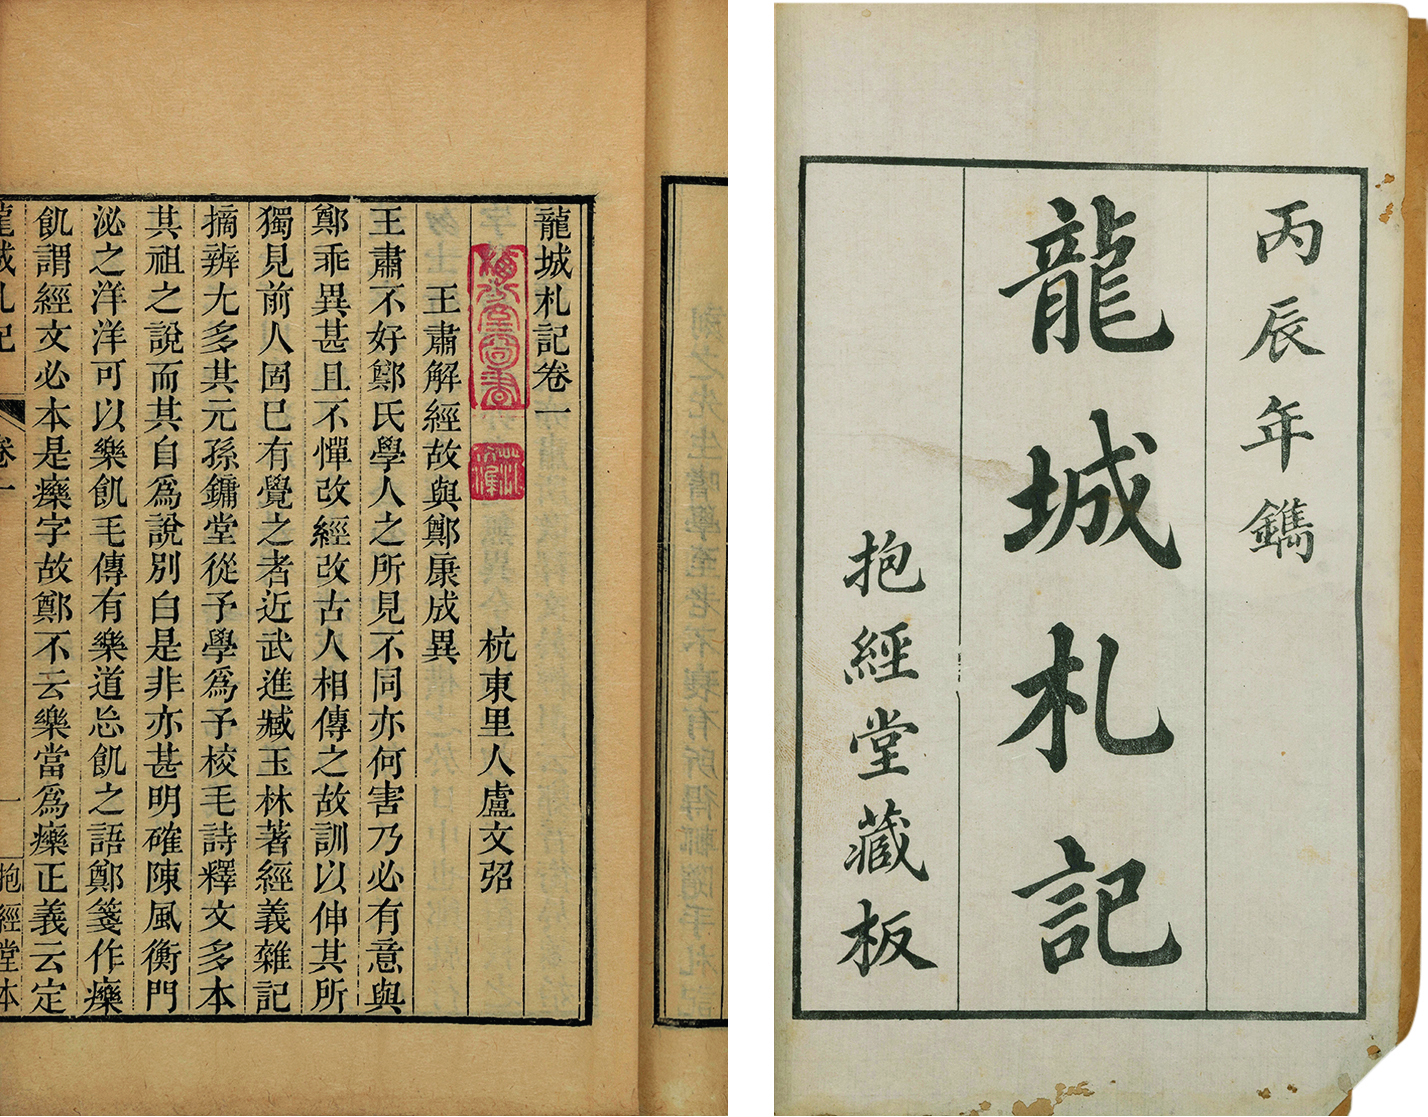 丙辰年鐫
龍城札記
抱經堂藏板
龍城札記卷一
杭東里人盧文弨
王肅解經故與鄭康成異
王肅不好鄭氏學人之所見不同亦何害乃必有意與
鄭乖異甚且不憚改經改古人相傳之故訓以伸其所
獨見前人固巳有覺之者近武進臧玉林著經義雜記
摘辨尢多其元孫鏞堂從予學爲予校毛詩釋文多本
其祖之說而其自爲說別白是非亦甚明確陳風衡門
泌之洋洋可以樂飢毛傳有樂道忘飢之語鄭箋作𤻲
飢謂經文必本是𤻲字故鄭不云樂當爲𤻲正義云定
龍城札記
卷一
一
抱經堂本